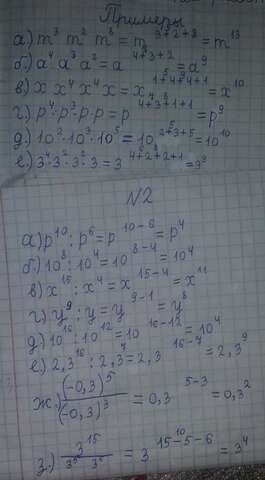 Примеры
а) m³ m² m⁸ = m³⁺²⁺⁸ = m¹³
б) a⁴ a³ a² = a⁴⁺³⁺² = a⁹
в) x x⁴ x⁴ x = x¹⁺⁴⁺⁴⁺¹ = x¹⁰
г) p⁴·p³·p·p = p⁴⁺³⁺¹⁺¹ = p⁹
д) 10²·10³·10⁵ = 10²⁺³⁺⁵ = 10¹⁰
е) 3⁴·3²·3²·3 = 3⁴⁺²⁺²⁺¹ = 3⁹
N2
а) p¹⁰ : p⁶ = p¹⁰⁻⁶ = p⁴
б) 10⁸ : 10⁴ = 10⁸⁻⁴ = 10⁴
в) x¹⁵ : x⁴ = x¹⁵⁻⁴ = x¹¹
г) y⁹ : y = y⁹⁻¹ = y⁸
д) 10¹⁶ : 10¹² = 10¹⁶⁻¹² = 10⁴
е) 2,3¹⁶ : 2,3⁷ = 2,3¹⁶⁻⁷ = 2,3⁹
ж) (-0,3)⁵ / (-0,3)³ = 0,3⁵⁻³ = 0,3²
з) 3¹⁵ / 3⁵ = 3 = 3⁴